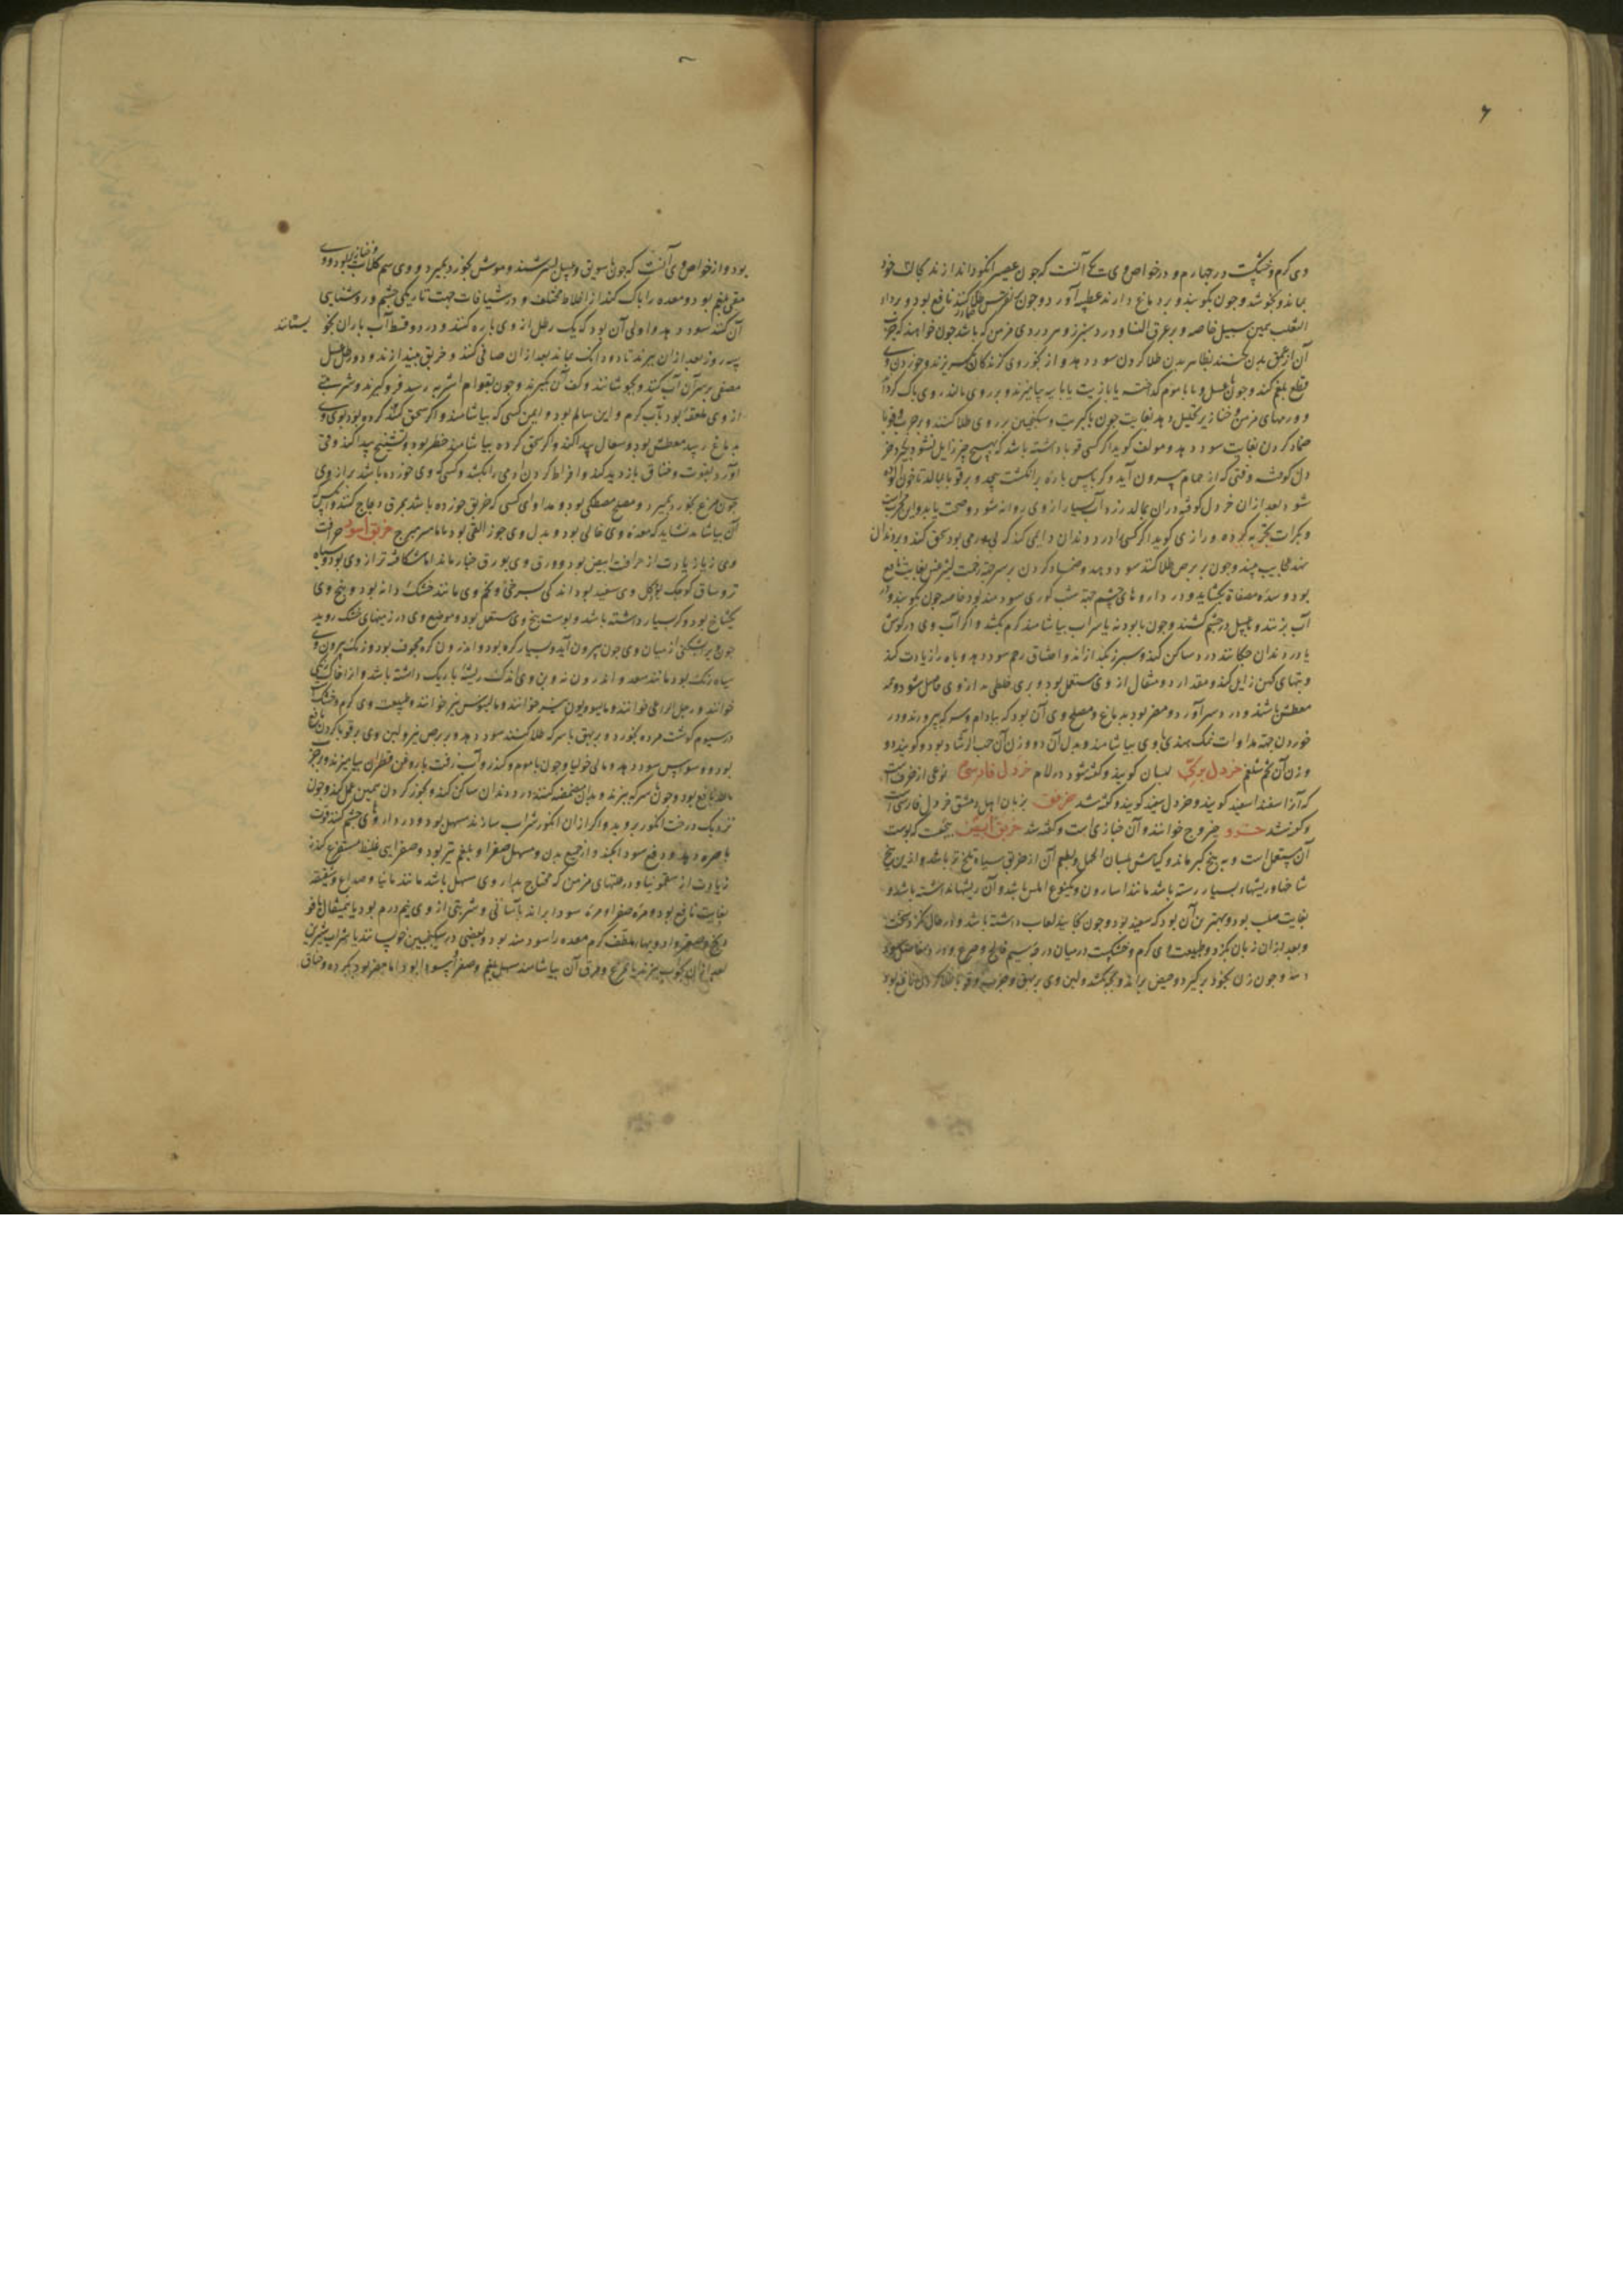 ۶
وی گرم و خشکست در چهارم و در خواص وی آنست که چون در عصیر انگور اندازند بحال خود
بماند و نجوشد و چون بکوبند و بر دماغ دارند عطسه آورد و چون طلا کنند نافع بود و بر داء
الثعلب همین سبیل خاصه و بر عرق النسا و درد سپرز و هر دردی مزمن که باشد چون خواهند که
آن از عمق بدن بظاهر بدن طلا کردن سود دهد و از بخور وی گزندگان بگریزند و خوردن وی
قطع بلغم کند و چون با عسل و یا با موم گداخته یا با زیت یا با پیه بیامیزند و بر روی مالند روی پاک کرداند
و ورمهای مزمن و خنازیر تحلیل دهد بغایت چون با کبریت و سکنجبین بر وی طلا کنند و بر جرب و قوبا
ضماد کردن بغایت سود دهد و مولف کوید اکر کسی قوبا داشته باشد که بهیچ چیز زایل نشود بگیرد خر
دل کوفته وقتی که از حمام بیرون آید و کرباس پاره بر انگشت پیچد و بر قوبا بمالد تا خون آلوده
شود بعد از آن خردل کوفته در آن بمالد زرد آب بسیار از وی روانه شود و صحت یابد و این مجربست
و بکرات تجربه کرده و رازی کوید اکر کسی را درد دندان دایمی کند که بی ورمی بود سحق کند و بر دندان
نهد عجایب بیند و چون بر برص طلا کنند سود دهد و ضماد کردن بر سر جهة لیثرغس بغایت نافع
بود و سده مصفاة بکشاید و در داروهای چشم جهة شب کوری سودمند بود خاصه چون بکوبند و در
آب بزنند و بعسل در چشم کشند و چون با بودنه یا شراب بیاشامند کرم بکشد و اکر آب وی در کوش
یا در دندان چکانند درد ساکن کند و سپرز بگدازاند و اختناق رحم سود دهد و باه را زیادت کند
و تبهای کهن زایل کند و مقدار دو مثقال از وی مستعمل بود و بری خلطی بد از وی حاصل شود و
معطش باشد و درد سر آورد و مضر بود به دماغ و مصلح وی آن بود که ببادام و سرکه بپرورند و در
خوردن جهة مداوات نمک هندی با وی بیاشامند و بدل آن دو وزن آن حب الرشاد بود و کویند دو
وزن آن تخم شلغم خردل بری لبسان کویند و کفته شود در لام خردل فارسی نوعی از حرفست
که آنرا اسفند اسفید کویند و خردل سفید کویند و کفته شد خرفق بزبان اهل دمشق خردل فارسی است
و کفته شد خرو خروج خوانند و آن خیاری است و کفته شد خربق ابیض بیخست که پوست
آن مستعمل است و به بیخ کبر ماند و کیاهش بلسان الحمل و بطعم آن از خربق سیاه تلخ تر باشد و ازین بیخ
شاخها و ریشها بسیار رسته باشد مانند اسارون و یکنوع املس باشد و آن ریشها نداشته باشد و
بغایت صلب بود و بهترین آن بود که سفید بود و چون بخایند لعاب داشته باشد و در حال نکزد سخت
و بعد از آن زبان بکزد و طبیعت وی گرم و خشکست در میان درجه سیم فالج و صرع و درد مفاصل سود
دهد و چون زن بخود برگیرد حیض براند و بچه بکشد و لبن وی بر بهق و جرب و قوبا طلا کردن نافع بود
بود و از خواص وی آنست که چون با سویق و عسل بسرشند و موش بخورد بمیرد و وی سم کلاب بود و خنازیر و وی
مقی بلغم بود و معده را پاک کند از اخلاط مختلف و در شیافات جهت تاریکی چشم و روشنایی
آن کنند سود دهد و اولی آن بود که یک رطل از وی پاره کنند و در دو قسط آب باران بخو یسانند
سه روز بعد از آن بپزند تا دو دانک بماند بعد از آن صافی کنند و خربق بیندازند و دو رطل عسل
مصفی بر سر آن آب کنند و بجوشانند و کف آن بگیرند و چون بقوام اشربه رسد فرو گیرند و شربتی
از وی ملعقه بود بآب گرم و این سالم بود و ایمن کسی که بیاشامد و اکر سحق کند کرده بود بوی وی
به دماغ رسد معطش بود و سعال پیدا کند و اکر سحق کرده بیاشامند خطر بود و تشنج پیدا کند و قی
آورد بقوت و خناق بازدید کند و افراط کردن آدمی را بکشد و کسی که وی خورده باشد براز وی
چون مرغ بخورد بمیرد و مصلح مصطکی بود و مداوای کسی که خربق خورده باشد بمرق دجاج کنند و
آن بیاشامد نشاید که معده وی خالی بود و بدل وی جوز القی بود یا ماهیزهرج خربق اسود حرافت
وی زیاد باشد از حرافت ابیض بود و ورق وی بورق خیار ماند اما شکافته تر از وی بود و سیاه
تر و ساق کوچک بود و گل وی سفید بود اندکی بسرخی و تخم وی مانند خشک دانه بود و بیخ وی
یکشاخ بود و کره بسیار داشته باشد و پوست بیخ وی مستعمل بود و موضع وی در زمینهای خشک روید
چون بشکنی از میان وی چون بیرون آید و بسیار کره بود و اندرون کره مجوف بود و رنک بیرون وی
سیاه رنک بود مانند سعد و اندرون نه و بن وی اندک ریشهٔ باریک داشته باشد و از
خوانند و رجل الراعی خوانند و مالیوذیون نیز خوانند و مالینوس نیز خوانند و طبیعت وی گرم و خشکست
در سیوم گوشت مرده بخورد و بر بهق با سرکه طلا کنند سود دهد و بر برص نیز و لبن وی بر قوبا کردن نافع
بود و وسواس سود دهد و مالیخولیا و چون با موم و کندر و آب زفت یا روغن قطران بیامیزند و بر جرب
مالند نافع بود و چون با سرکه بپزند و بدان مضمضه کنند درد دندان ساکن کند و بخور کردن همین عمل کند و چون
نزدیک درخت انکور بروید و اکر از آن انکور شراب سازند مسهل بود و در داروهای چشم کنند قوت
باصره دهد و دفع سودا بکند و از جمیع بدن و مسهل صفرا و بلغم نیز بود و صفرایی غلیظ مستفرغ کند
زیادت از سقمونیا و در علتهای مزمن که محتاج بدار وی مسهل باشد مانند مانیا و صداع و شقیقه
بغایت نافع بود و مره صفرا و مره سودا براند بآسانی و شربتی از وی نیم درم بود یا نیمثقال با فو
دنج و صعتر و ادویهای ملطف گرم معده را سودمند بود و بعضی در سکنجبین خوسانند یا شراب شیرین
بعد از آن بپزند با مرغ و مرق آن بیاشامند مسهل بلغم و صفرا و سودا بود اما مضر بود بگرده و خناق